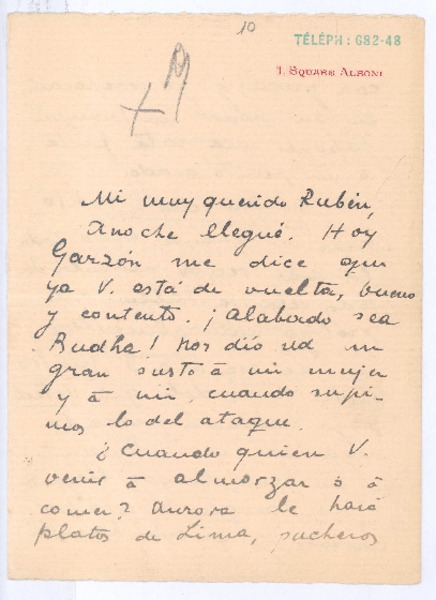 10
TÉLÉPH : 682-48
1, SQUARE ALBONI
+ 19
Mi muy querido Rubén,
Anoche llegué. Hoy
Garzón me dice que
ya V. está de vuelta, bueno
y contento. ¡Alabado sea
Budha! Nos dió ud un
gran susto á mi mujer
y á mi, cuando supi-
mos lo del ataque.
¿Cuando quiere V.
venir á almorzar ó á
comer? Aurora le hará
platos de Lima, pucheros